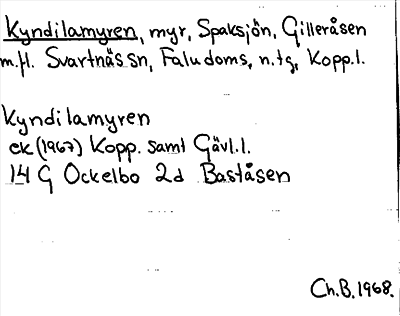 Kyndilamyren, myr, Spaksjön, Gilleråsen
m.fl. Svartnäs sn, Faludoms, n.tg, Kopp.l.
Kyndilamyren
ek (1967) Kopp. samt Gävl.l.
14 G Ockelbo 2d Baståsen
Ch.B. 1968.